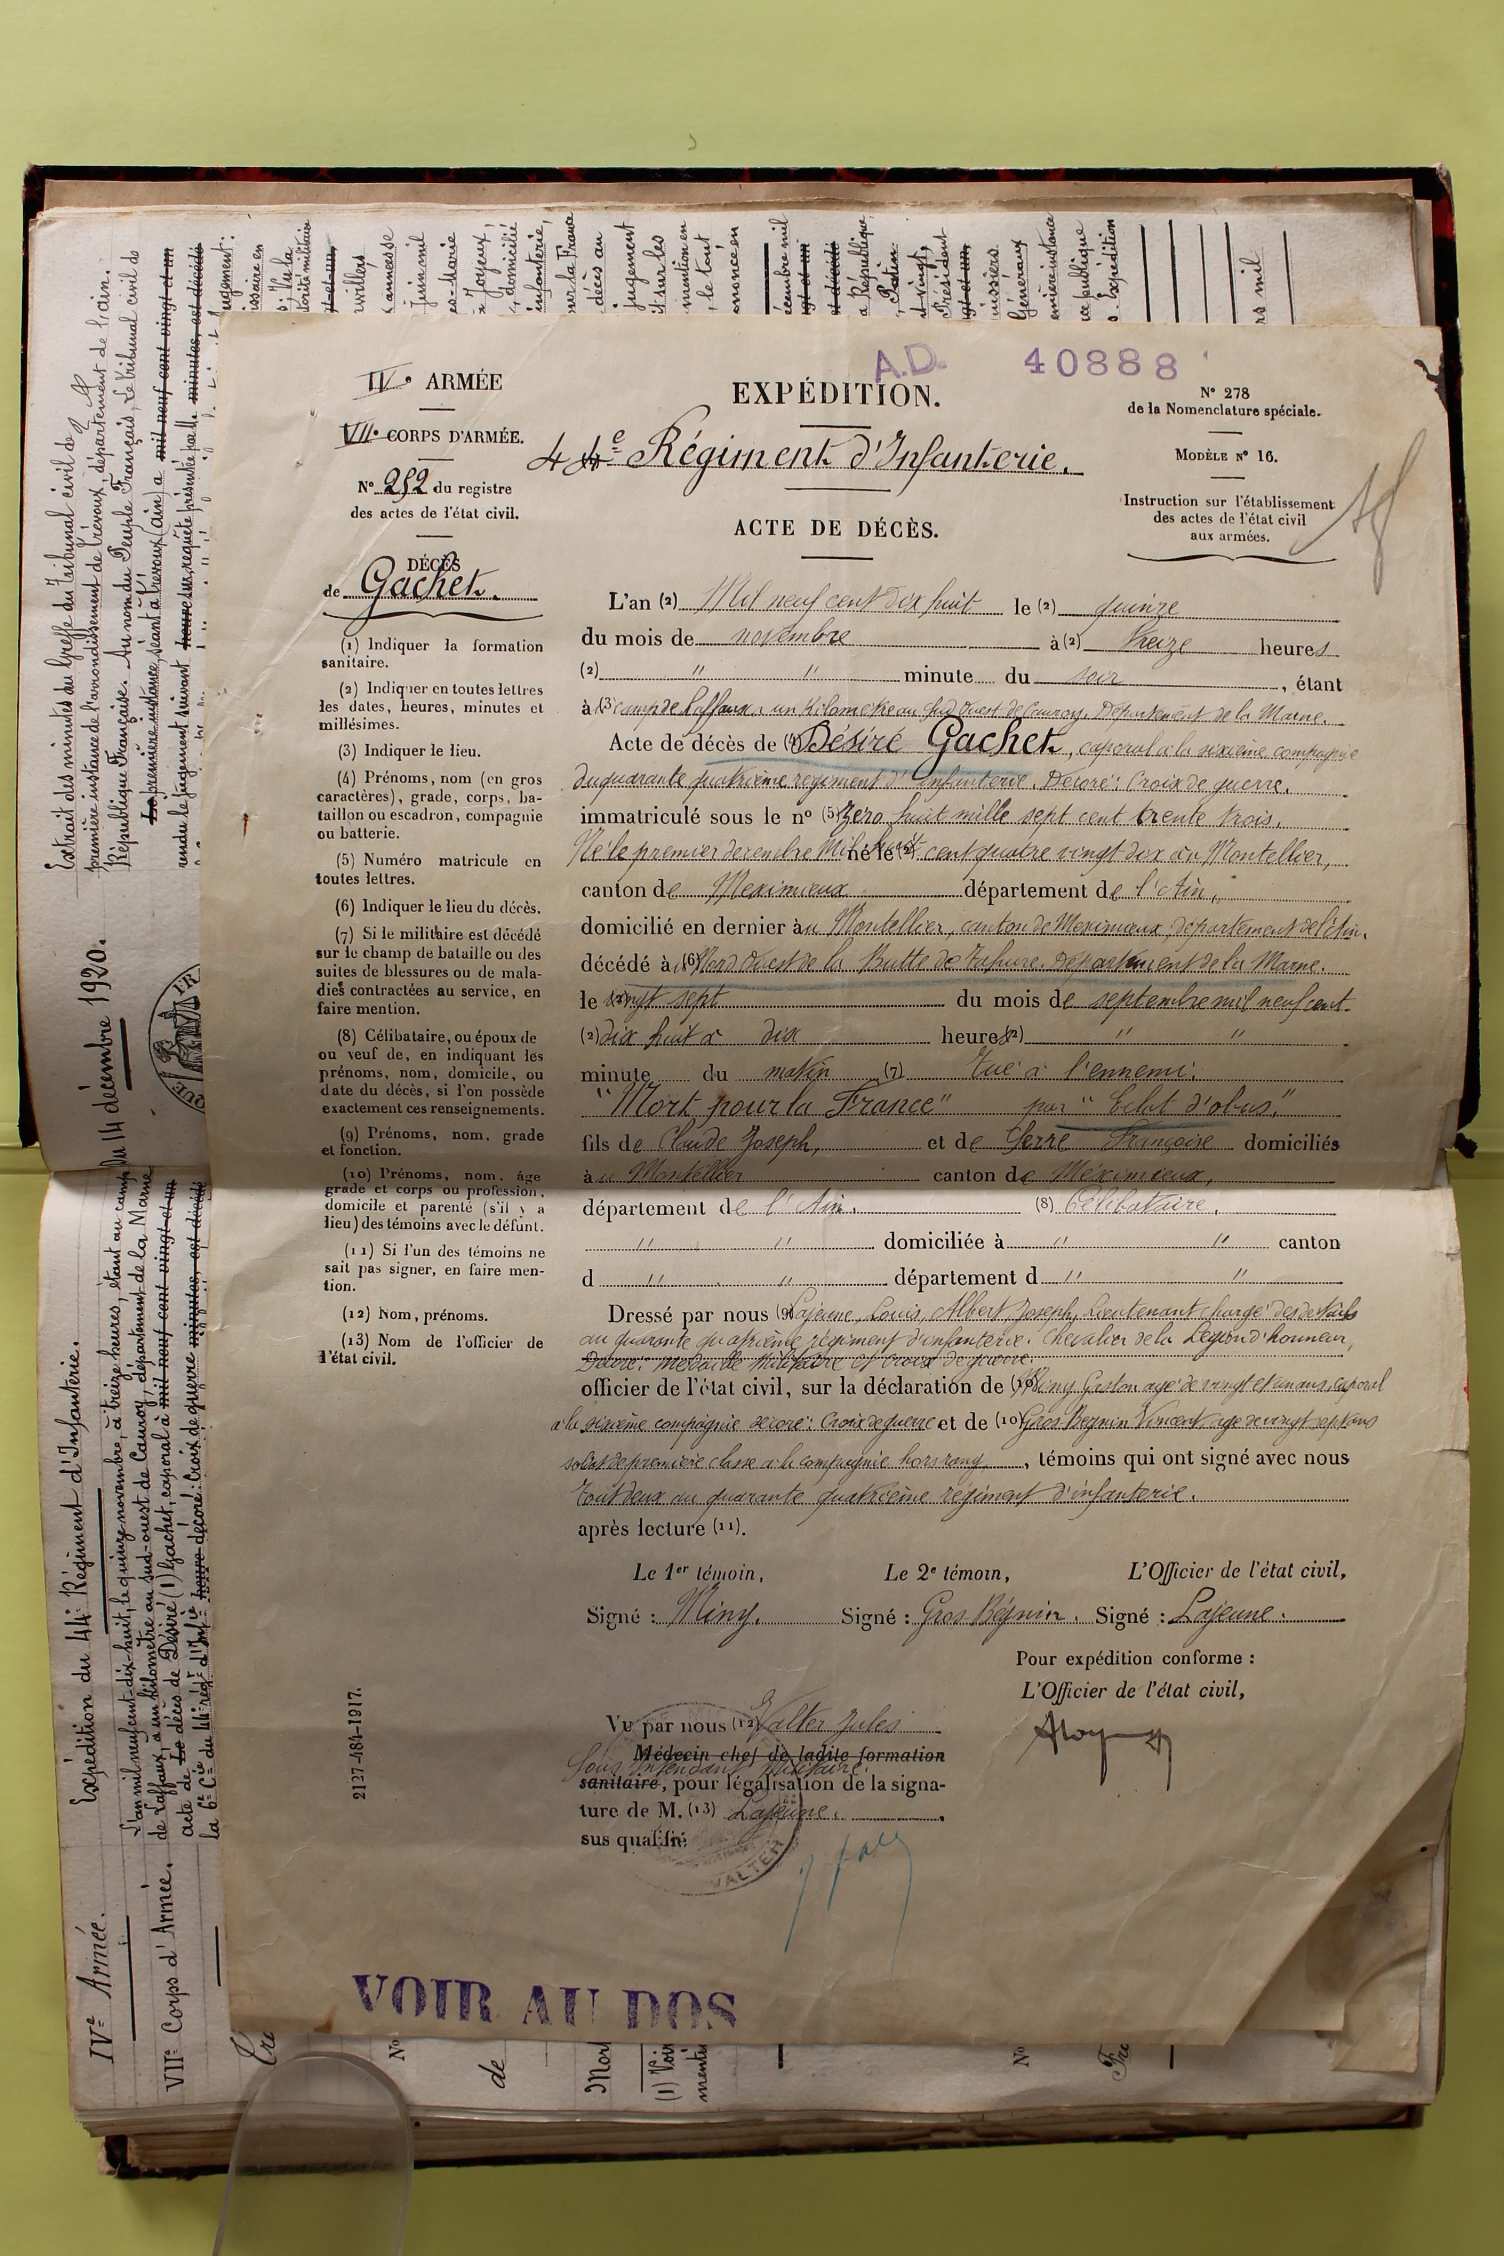 A.D. 40888
IVe ARMÉE
VIIe CORPS D'ARMÉE.
N° 252 du registre
des actes de l'état civil.
DÉCÈS
de Gachet.
(1) Indiquer la formation
sanitaire.
(2) Indiquer en toutes lettres
les dates, heures, minutes et
millésimes.
(3) Indiquer le lieu.
(4) Prénoms, nom (en gros
caractères), grade, corps, ba-
taillon ou escadron, compagnie
ou batterie.
(5) Numéro matricule en
toutes lettres.
(6) Indiquer le lieu du décès.
(7) Si le militaire est décédé
sur le champ de bataille ou des
suites de blessures ou de mala-
dies contractées au service, en
faire mention.
(8) Célibataire, ou époux de
ou veuf de, en indiquant les
prénoms, nom, domicile, ou
date du décès, si l'on possède
exactement ces renseignements.
(9) Prénoms, nom, grade
et fonction.
(10) Prénoms, nom, âge
grade et corps ou profession,
domicile et parenté (s'il y a
lieu) des témoins avec le défunt.
(11) Si l'un des témoins ne
sait pas signer, en faire men-
tion.
(12) Nom, prénoms.
(13) Nom de l'officier de
l'état civil.
2127-484-1917.
EXPÉDITION.
44e Régiment d'Infanterie.
ACTE DE DÉCÈS.
N° 278
de la Nomenclature spéciale.
MODÈLE N° 16.
Instruction sur l'établissement
des actes de l'état civil
aux armées.
L'an (2) Mil neuf cent dix huit le (2) quinze
du mois de novembre à (2) treize heures
(2) " " minute du soir, étant
à (3) camp de Laffaux à un kilomètre au sud ouest de Cauroy. Département de la Marne.
Acte de décès de (4) Désiré Gachet, caporal à la sixième compagnie
du quarante quatrième régiment d'infanterie. Décoré: Croix de guerre.
immatriculé sous le n° (5) Zéro huit mille sept cent trente trois.
Né le premier décembre Mil né le (2) huit cent quatre vingt dix au Montellier,
canton de Meximieux département de l'Ain,
domicilié en dernier au Montellier, canton de Meximieux, département de l'Ain.
décédé à (6) Nord Ouest de la Butte de Tahure. Département de la Marne.
le (2) vingt sept du mois de septembre mil neuf cent
(2) dix huit à dix heures (2) " "
minute du matin (7) Tué à l'ennemi.
"Mort pour la France" par "Eclat d'obus."
fils de Claude Joseph, et de Serre Françoise domiciliés
à u Montellier canton de Méximieux,
département de l'Ain. (8) Célibataire.
" " domiciliée à " " canton
d " " département d " "
Dressé par nous (9) Lajeune, Louis, Albert, Joseph, Lieutenant chargé des détails
au quarante quatrième régiment d'infanterie. Chevalier de la Légion d'honneur,
Décoré: médaille militaire et croix de guerre.
officier de l'état civil, sur la déclaration de (10) Miny Gaston agé de vingt et un ans, caporal
à la sixième compagnie décoré: Croix de guerre et de (10) Gros Béguin Vincent, age de vingt sept ans
soldat de première classe à la compagnie hors rang, témoins qui ont signé avec nous
tout deux au quarante quatrième régiment d'infanterie.
après lecture (11).
Le 1er témoin, Le 2e témoin, L'Officier de l'état civil,
Signé : Miny. Signé : Gros Béguin. Signé : Lajeune.
Pour expédition conforme :
L'Officier de l'état civil,
Vu par nous (12) Valter Jules
Médecin chef de ladite formation
Sous Intendant Militaire.
sanitaire, pour légalisation de la signa-
ture de M. (13) Lajeune.
sus qualifié
VALTER
VOIR AU DOS
Extrait des minutes du Greffe du Tribunal civil de
première instance de l'arrondissement de Trévoux, département de l'Ain.
République Française. Au nom du Peuple Français, Le tribunal civil de
première instance, séant à Trévoux (Ain) a mil neuf cent vingt et un
rendu le jugement suivant heure sur requête présentée par la minutes, est décédé
Du 14 décembre 1920.
Expédition du 44e Régiment d'Infanterie.
IVe Armée.
VIIe Corps d'Armée.
L'an mil neuf cent dix-huit, le quinze novembre, à treize heures, étant au camp
de Laffaux, à un kilomètre au sud-ouest de Cauroy, département de la Marne
acte de Le décès de Désiré (1) Gachet, caporal à mil neuf cent vingt et un
la 6e Cie du 44e régt d'Infie heure décoré: Croix de guerre minutes, est décédé